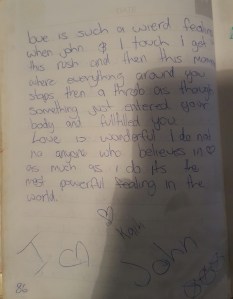 love is such a wierd feeling
when john & I touch I get
this rush and then this moment
where everything around you
stops then a throb as though
something just entered your
body and fulfilled you.
Love is wonderful I do not
no anyone who believes in ♡
as much as i do its the
most powerful feeling in the
world.
♡
John
86